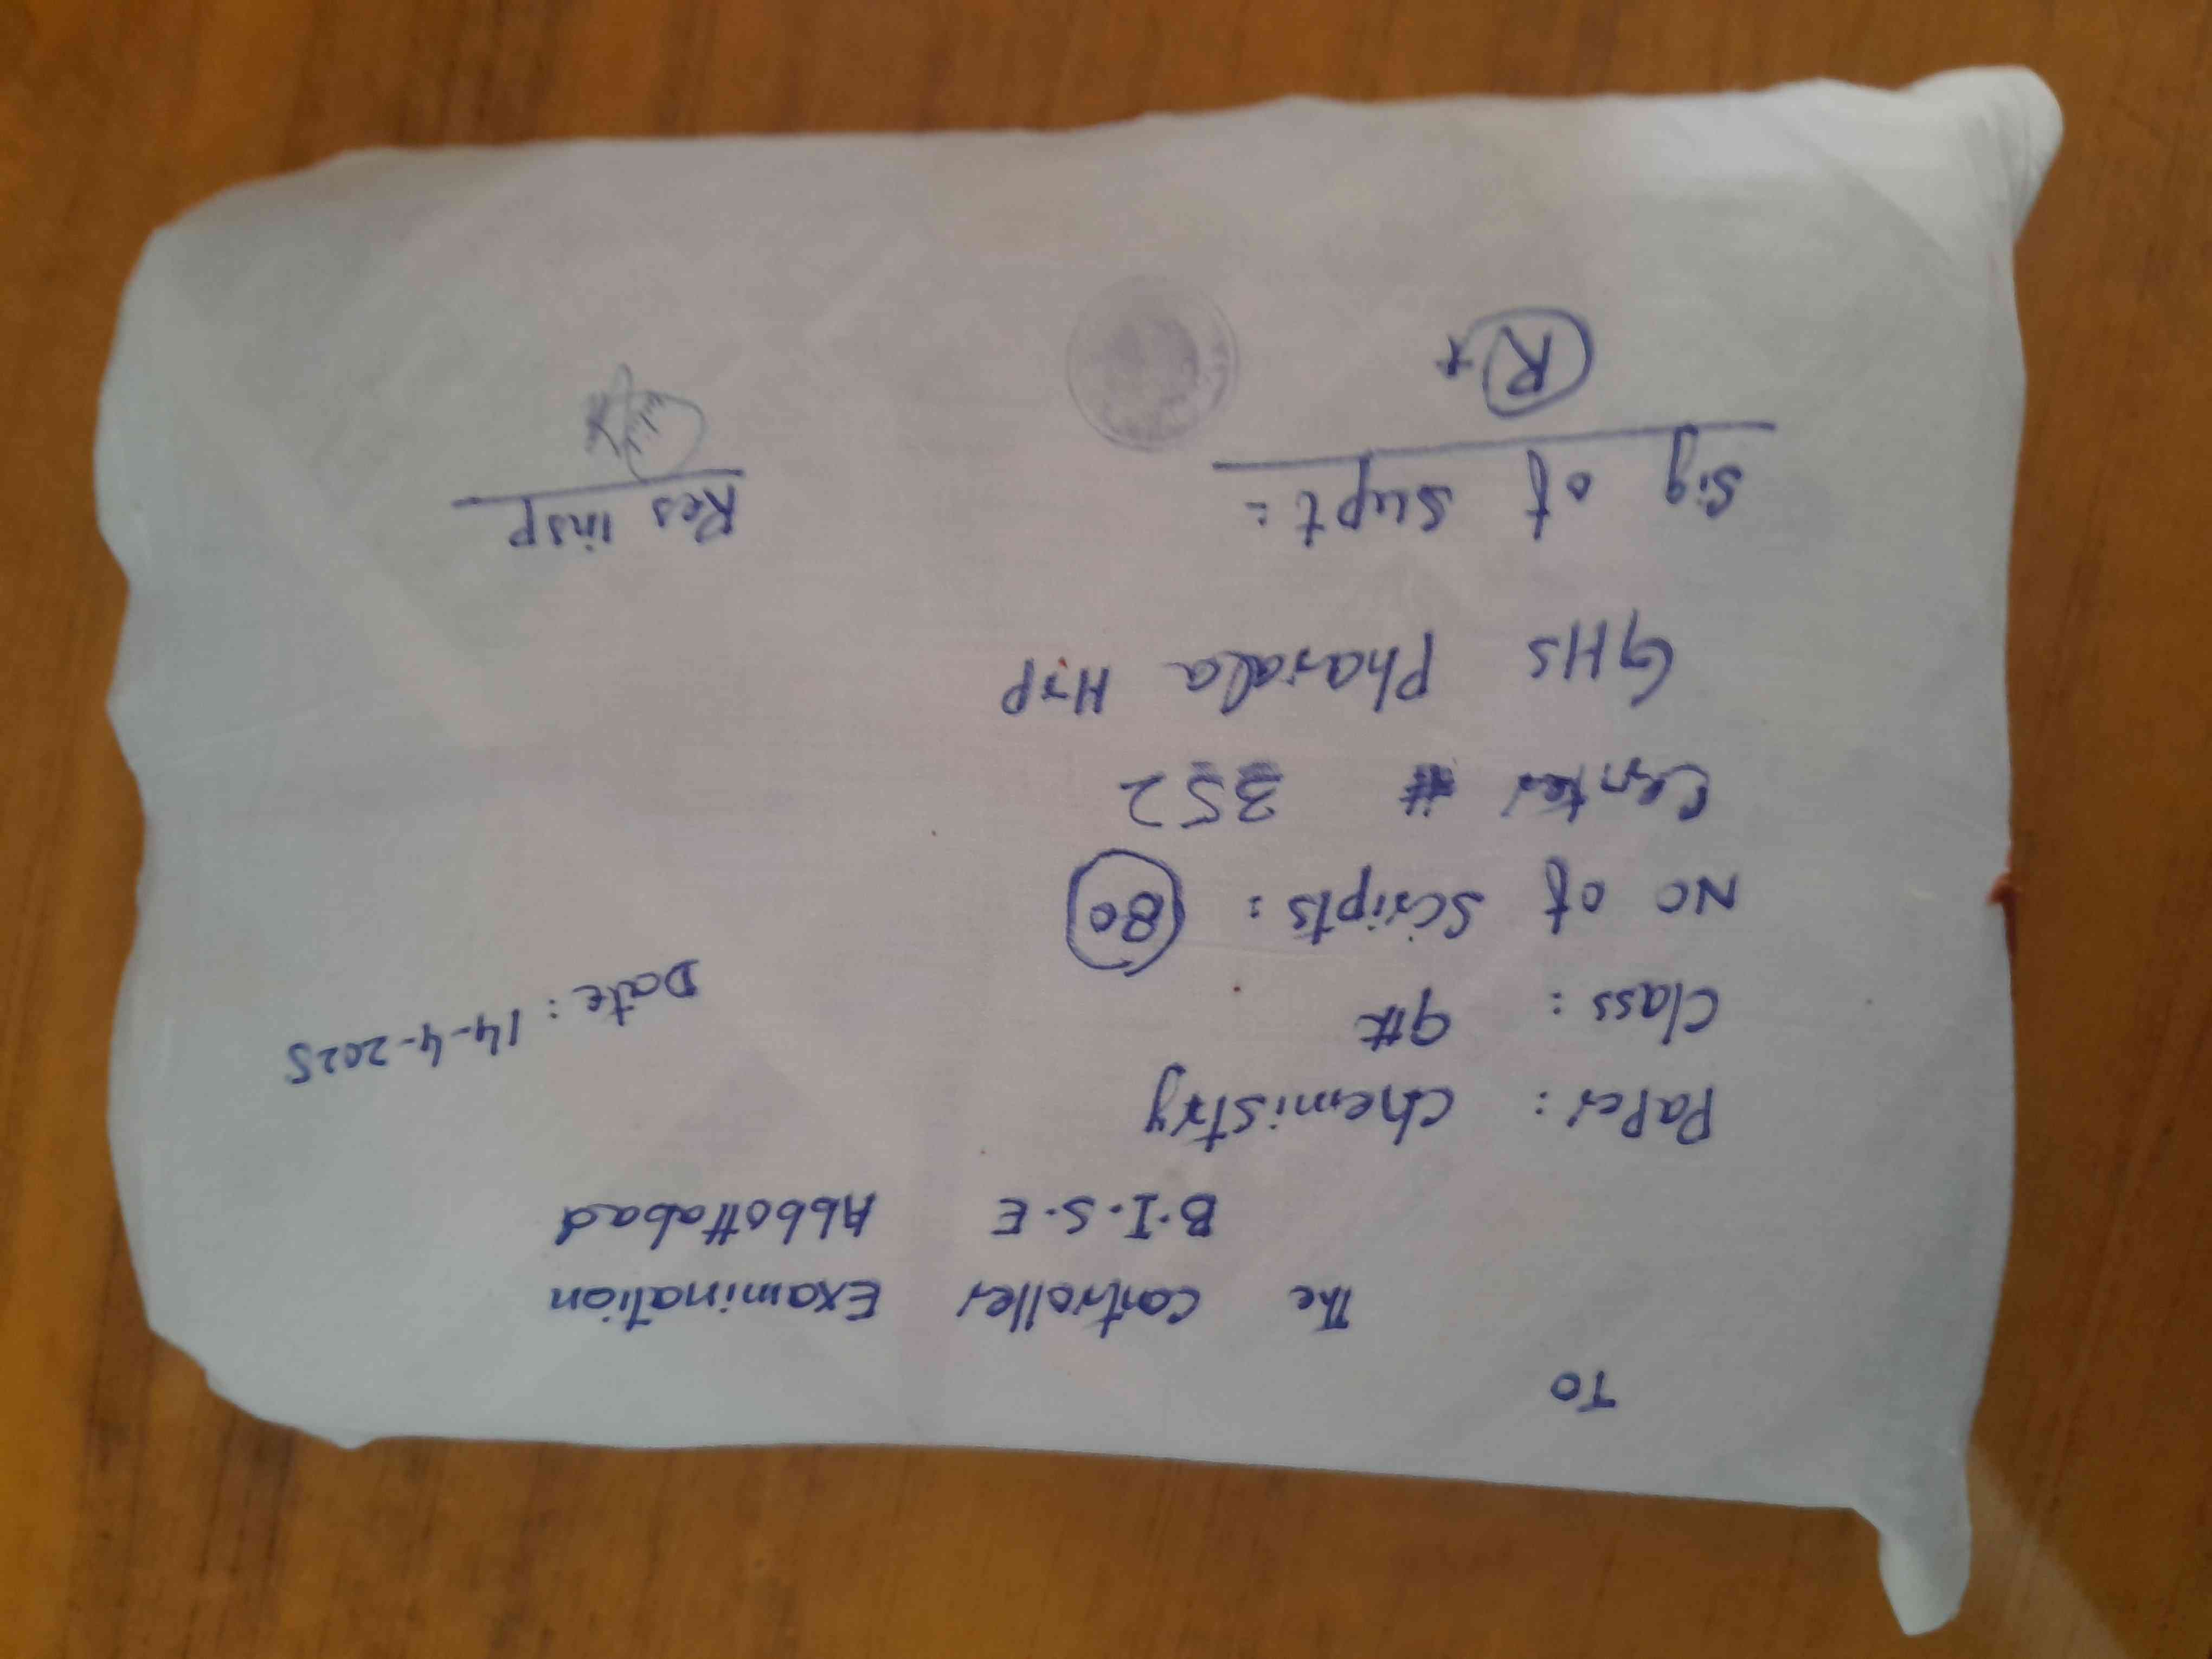 To
The Controller Examination
B.I.S.E Abbottabad
Paper: Chemistry
Class: 9th
Date: 14-4-2025
No of Scripts: 80
Center # 352
GHS Pharala Hrp
Sig of Supt:
Res insp
R